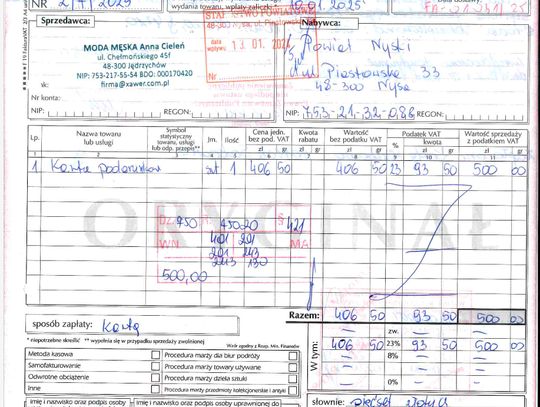 NR 2/1/2025
wydania towaru, wpłaty zaliczki
10.01.2025r
Sprzedawca:
MODA MĘSKA Anna Cieleń
ul. Chełmońskiego 45f
48-300 Jędrzychów
NIP: 753-217-55-54 BDO: 000170420
firma@xawer.com.pl
Nr konta:
NIP:
REGON:
wpływu 13. 01. 2025
Nr
Nabywca:
Powiat Nyski
ul. Piastowska 33
48-300 Nysa
NIP: 753-21-32-088
REGON:
Lp. Nazwa towaru lub usługi Symbol statystyczny towaru, usługi lub odp. przepis** Jm. Ilość Cena jedn. bez pod. VAT Kwota rabatu Wartość bez podatku VAT Podatek VAT Wartość sprzedaży z podatkiem VAT
zł gr zł gr zł gr % kwota zł gr zł gr
1 2 3 4 5 6 7 8 9 10 11
1. Karta podarunkowa szt 1 406 50 406 50 23 93 50 500 00
ORYGINAŁ
Dz. 750 75020 § 421
WN 401 201 MA
201 243
243 130
500,00
Razem: 406 50 93 50 500 00
sposób zapłaty: Kartą
W tym:
zw.
406 50 23% 93 50 500 00
8%
0%
* niepotrzebne skreślić ** wypełnia się w przypadku sprzedaży zwolnionej
Wzór zgodny z Rozp. Min. Finansów
Metoda kasowa
Procedura marży dla biur podróży
Samofakturowanie
Procedura marży towary używane
Odwrotne obciążenie
Procedura marży dzieła sztuki
Inne
Procedura marży przedmioty kolekcjonerskie i antyki
słownie: pięćset złotych
Imię i nazwisko oraz podpis osoby
Imię i nazwisko oraz podpis osoby uprawnionej do